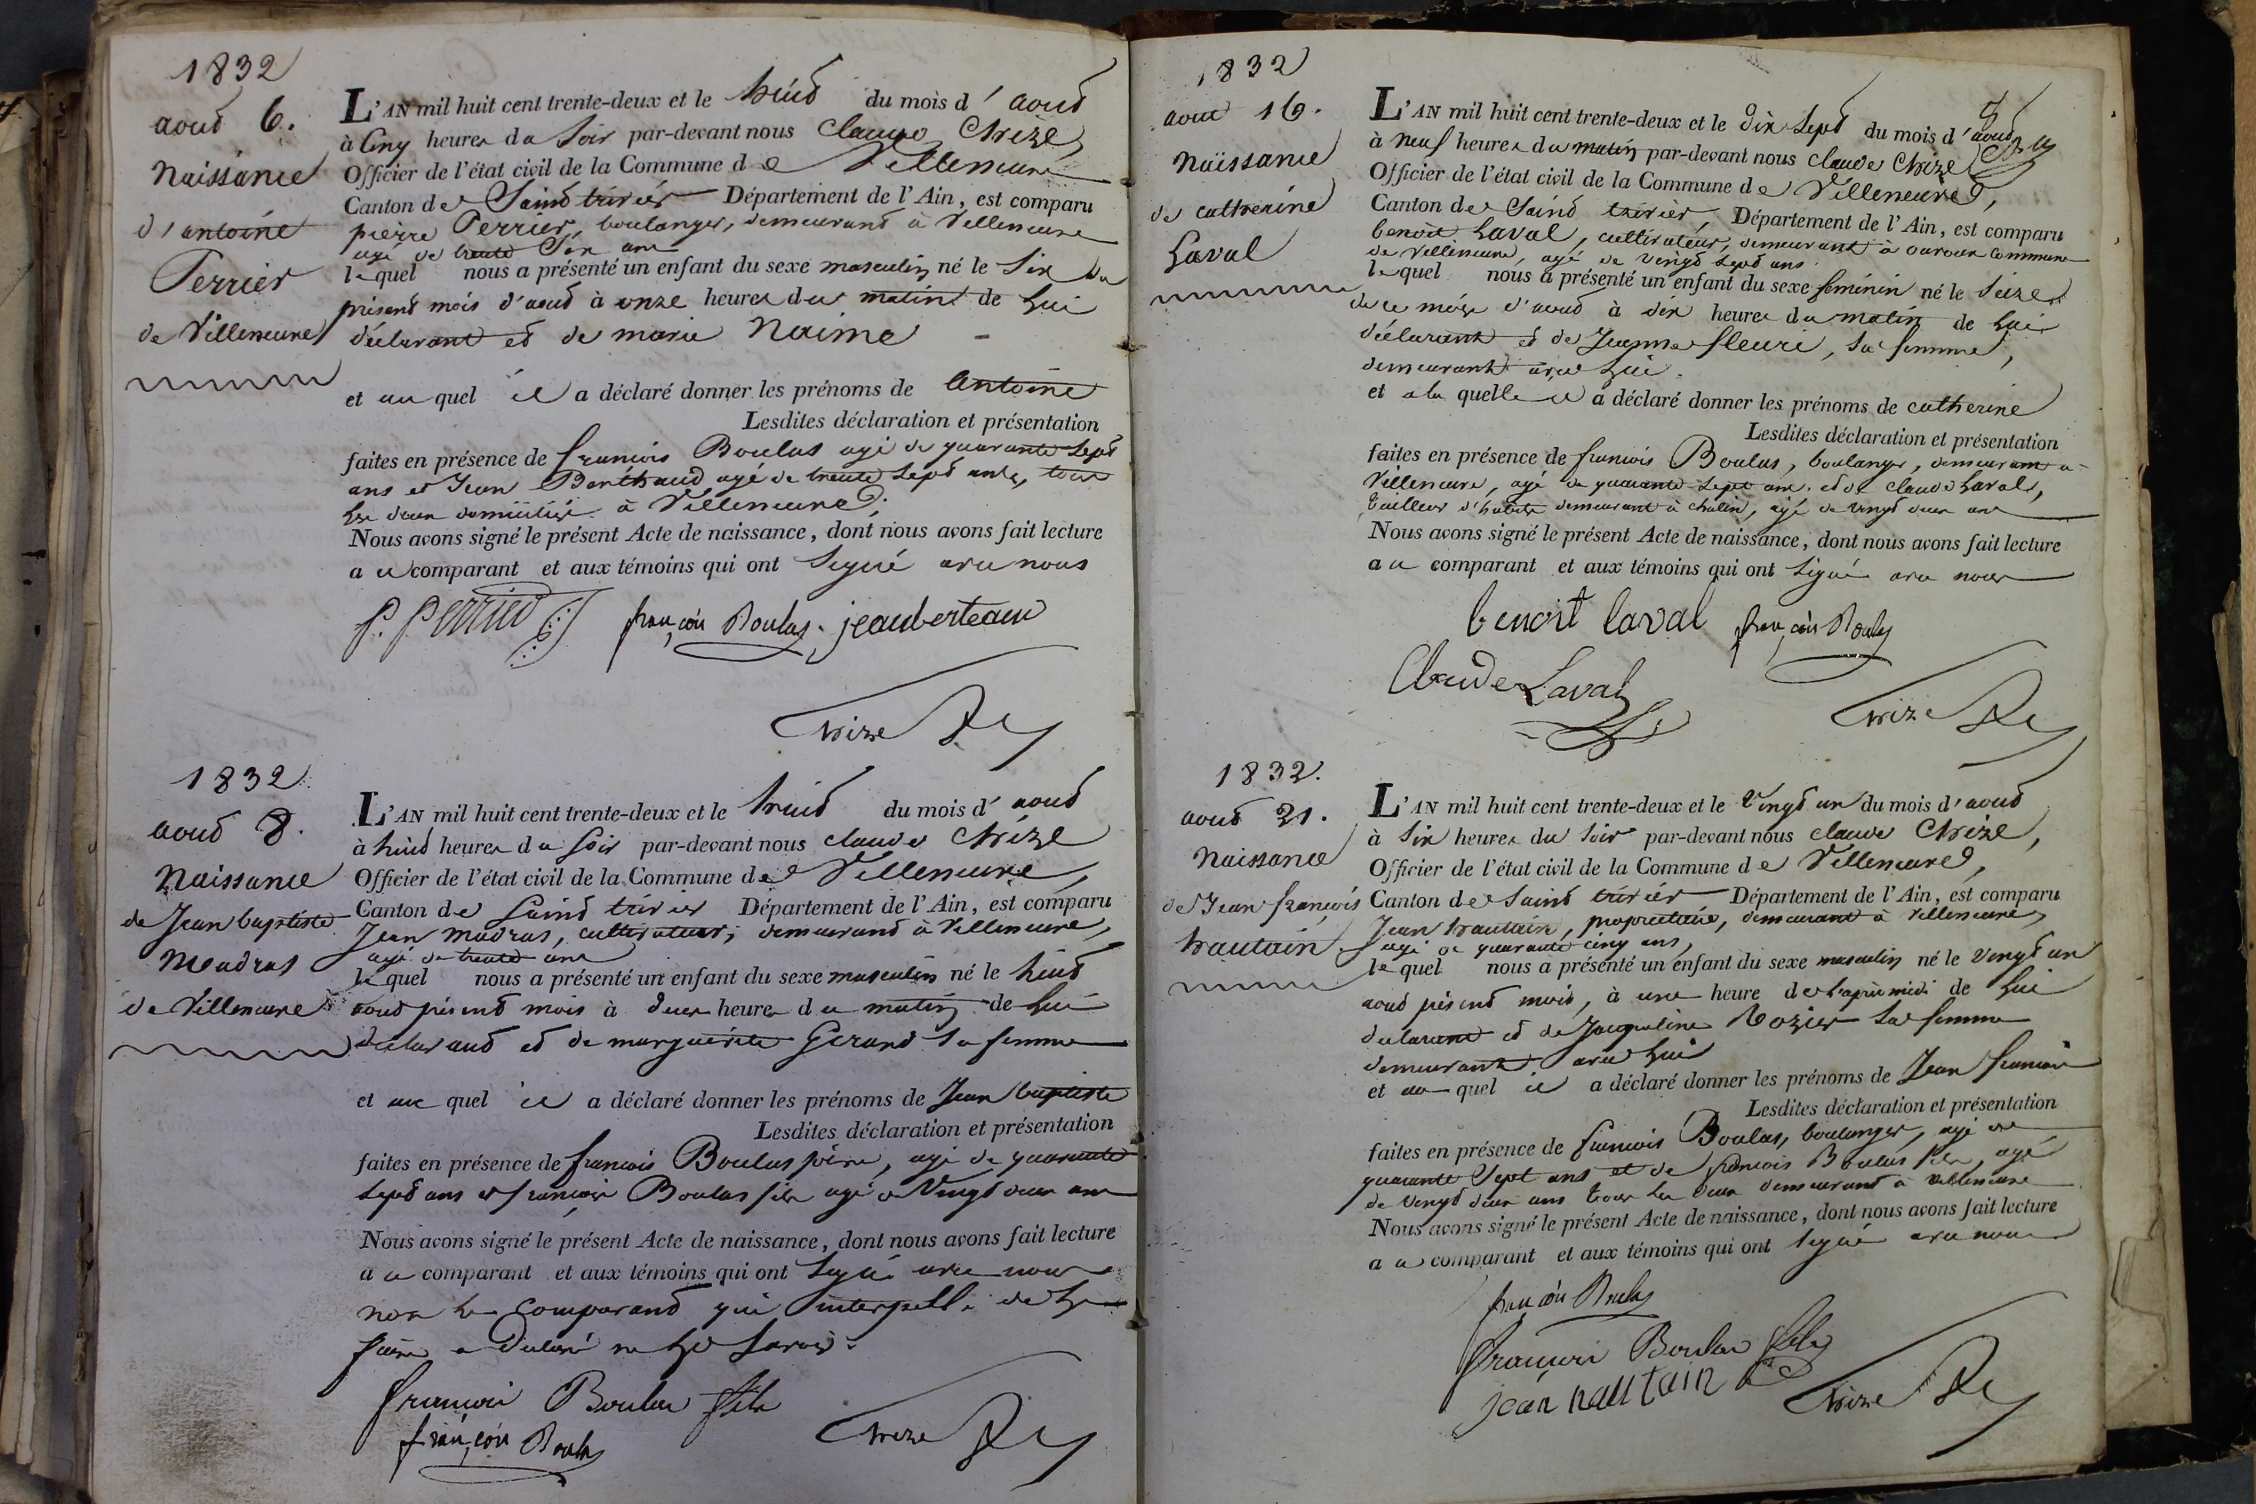 1832
aoud 6.
Naissance
d'antoine
Perrier
de Villeneuve
L'AN mil huit cent trente-deux et le huid du mois d'aoud
à cinq heures du soir par-devant nous claude Chize,
Officier de l'état civil de la Commune de Villeneuve
Canton de Saind trivier Département de l'Ain, est comparu
pierre Perrier, boulanger, demeurand à Villeneuve
agé de trente six ans
lequel nous a présenté un enfant du sexe masculin né le six du
présend mois d'aoud à onze heures du matin de lui
déclarant et de marie Naime
et au quel il a déclaré donner les prénoms de antoine
Lesdites déclaration et présentation
faites en présence de francois Boulas agé de quarante sepd
ans et Jean Berthaud agé de trente sepd ans, tous
les deux domiciliés à Villeneuve;
Nous avons signé le présent Acte de naissance, dont nous avons fait lecture
au comparant et aux témoins qui ont signé avec nous
P. Perrier francois Boulas jeanberteau
Chize
1832
aoud 8.
Naissance
de Jean baptiste
Madras
de Villeneuve
L'AN mil huit cent trente-deux et le huid du mois d'aoud
à huid heures du soir par-devant nous claude Chize
Officier de l'état civil de la Commune de Villeneuve,
Canton de Saind trivier Département de l'Ain, est comparu
Jean Madras, cultivateur, demeurand à Villeneuve,
agé de trente ans
lequel nous a présenté un enfant du sexe masculin né le huid
aoud présend mois à deux heures du matin de lui
déclarand et de marguerite Gerand sa femme
et au quel il a déclaré donner les prénoms de Jean baptiste
Lesdites déclaration et présentation
faites en présence de francois Boulas père, agé de quarante
sepd ans et francois Boulas fils agé de vingd deux ans
Nous avons signé le présent Acte de naissance, dont nous avons fait lecture
au comparant et aux témoins qui ont signé avec nous
non le comparand qui interpellé de le
faire a déclaré ne le savoir.
francois Boulas fils
francois Boulas Chize
1832
aout 16.
Naissance
de catherine
Laval
L'AN mil huit cent trente-deux et le dix sepd du mois d'aoud
à neuf heures du matin par-devant nous claude Chize
Officier de l'état civil de la Commune de Villeneuve,
Canton de Saind trivier Département de l'Ain, est comparu
benoit Laval, cultivateur, demeurant à ouroux commune
de Villeneuve, agé de vingd sepd ans
lequel nous a présenté un enfant du sexe feminin né le seize
de ce mois d'aoud à dix heures du matin de lui
déclarant et de Jeanne fleuri, sa femme,
demeurant avec lui.
et a la quelle il a déclaré donner les prénoms de catherine
Lesdites déclaration et présentation
faites en présence de francois Boulas, boulanger, demeurant a
Villeneuve, agé de quarante sept ans. et de claude Laval,
tailleur d'habits demeurant à chalin, agé de vingd deux ans
Nous avons signé le présent Acte de naissance, dont nous avons fait lecture
au comparant et aux témoins qui ont signé avec nous
benoit laval francois Boulas
Claude Laval
Chize
1832.
aoud 21.
Naissance
de Jean françois
hautain
L'AN mil huit cent trente-deux et le vingd un du mois d'aoud
à six heures du soir par-devant nous claude Chize,
Officier de l'état civil de la Commune de Villeneuve,
Canton de Saind trivier Département de l'Ain, est comparu
Jean hautain, propriétaire, demeurant à Villeneuve,
agé de quarante cinq ans,
lequel nous a présenté un enfant du sexe masculin né le vingd un
aoud présend mois, à une heure de l'après midi de lui
déclarant et de Jacqueline Rozier sa femme
demeurant avec lui
et au quel il a déclaré donner les prénoms de Jean francois
Lesdites déclaration et présentation
faites en présence de francois Boulas, boulanger, agé de
quarante sept ans et de francois Boulas fils, agé
de vingd deux ans tous les deux demeurand à villeneuve
Nous avons signé le présent Acte de naissance, dont nous avons fait lecture
au comparant et aux témoins qui ont signé avec nous
francois Boulas
francois Boulas fils
jean hautain Chize